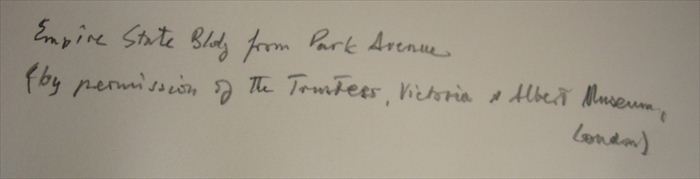 Empire State Bldg from Park Avenue
(by permission of the Trustees, Victoria & Albert Museum,
London)